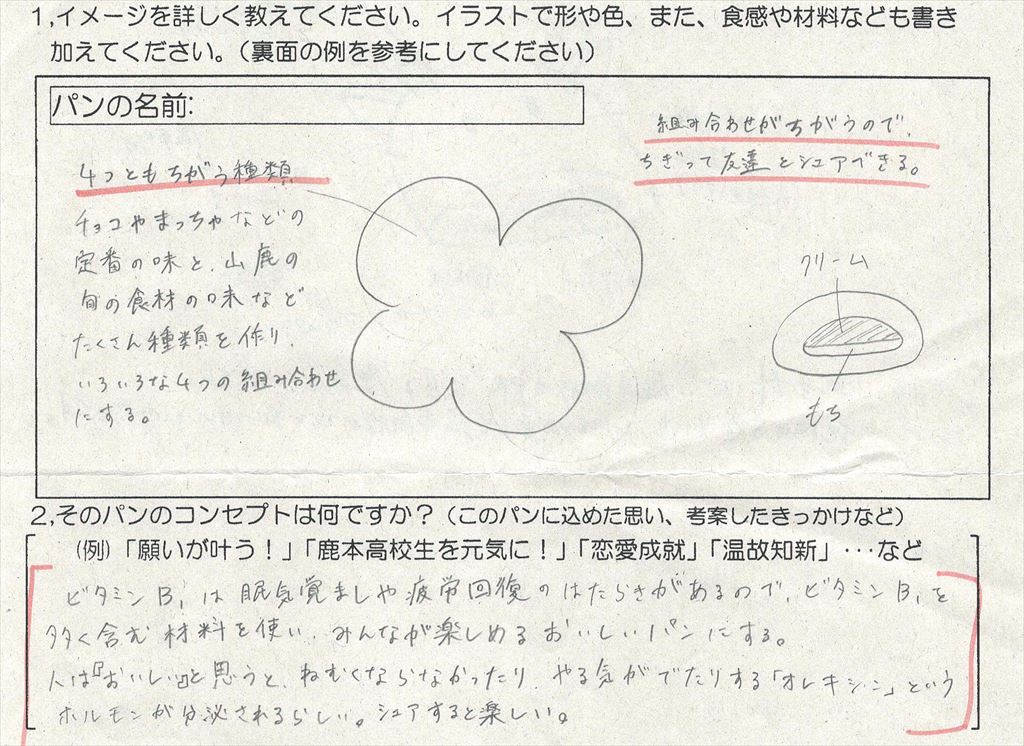 1,イメージを詳しく教えてください。イラストで形や色、また、食感や材料なども書き
加えてください。(裏面の例を参考にしてください)
パンの名前:
組み合わせがちがうので、
ちぎって友達とシェアできる。
4つともちがう種類
チョコやまっちゃなどの
定番の味と、山鹿の
旬の食材の味など
たくさん種類を作り、
いろいろな4つの組み合わせ
にする。
クリーム
もち
2,そのパンのコンセプトは何ですか?(このパンに込めた思い、考案したきっかけなど)
(例)「願いが叶う!」「鹿本高校生を元気に!」「恋愛成就」「温故知新」・・・など
ビタミンB₁は眠気覚ましや疲労回復のはたらきがあるので、ビタミンB₁を
多く含む材料を使い、みんなが楽しめるおいしいパンにする。
人は『おいしい』と思うと、ねむくならなかったり、やる気がでたりする「オレキシン」という
ホルモンが分泌されるらしい。シェアすると楽しい。